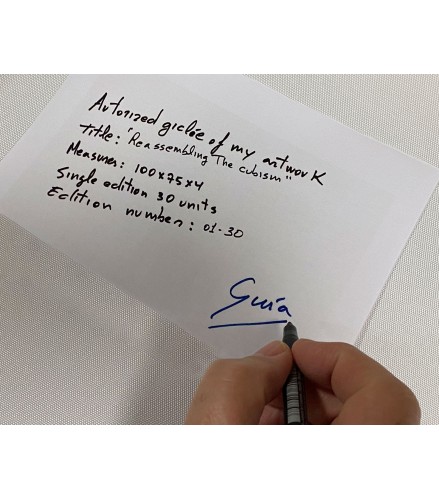 Autorized giclée of my artwork
Title: "Reassembling The cubism"
Measures: 100x75x4
Single edition 30 units
Edition number: 01-30
Guía